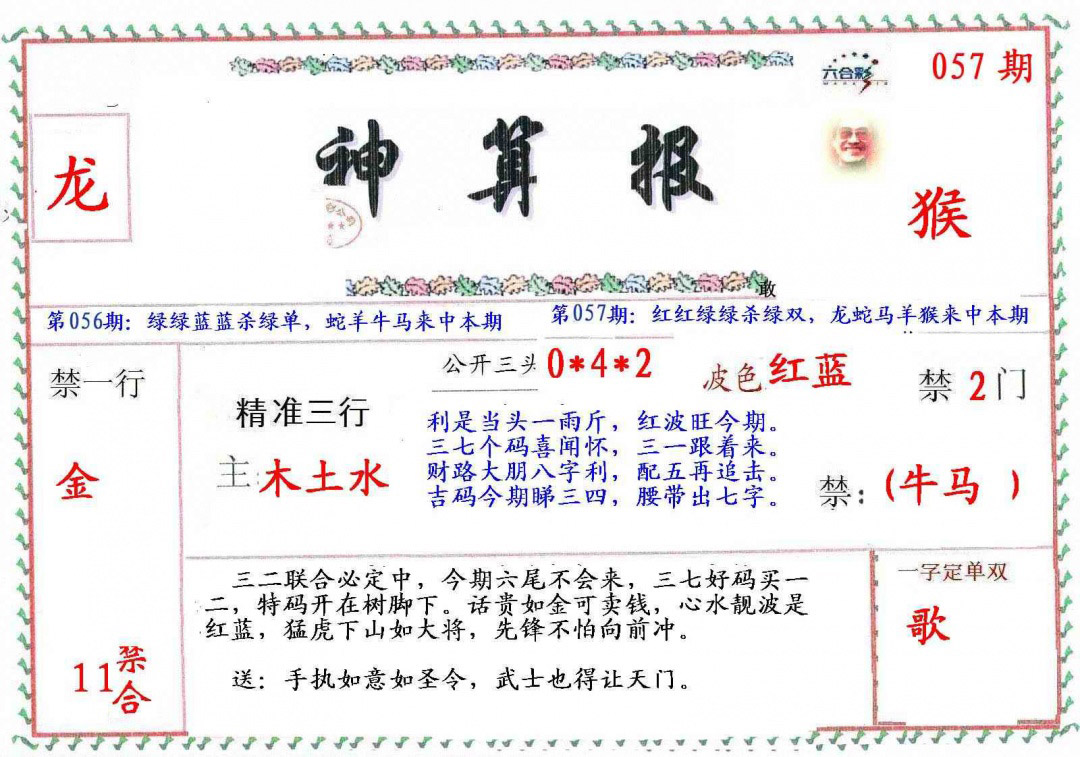 057 期
六合彩
神算报
龙
猴
敢
第056期：绿绿蓝蓝杀绿单，蛇羊牛马来中本期
第057期：红红绿绿杀绿双，龙蛇马羊猴来中本期
禁一行
金
11禁合
精准三行
主:木土水
公开三头 0*4*2
波色 红蓝
利是当头一雨斤，红波旺今期。
三七个码喜闻怀，三一跟着来。
财路大朋八字利，配五再追击。
吉码今期睇三四，腰带出七字。
禁 2 门
禁：(牛马 )
三二联合必定中，今期六尾不会来，三七好码买一
二，特码开在树脚下。话贵如金可卖钱，心水靓波是
红蓝，猛虎下山如大将，先锋不怕向前冲。
送：手执如意如圣令，武士也得让天门。
一字定单双
歌